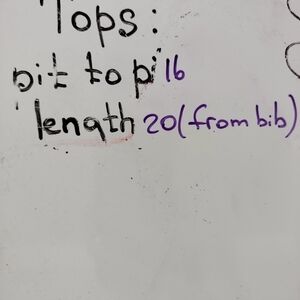 Tops:
pit to pi 16
length 20 (from bib)